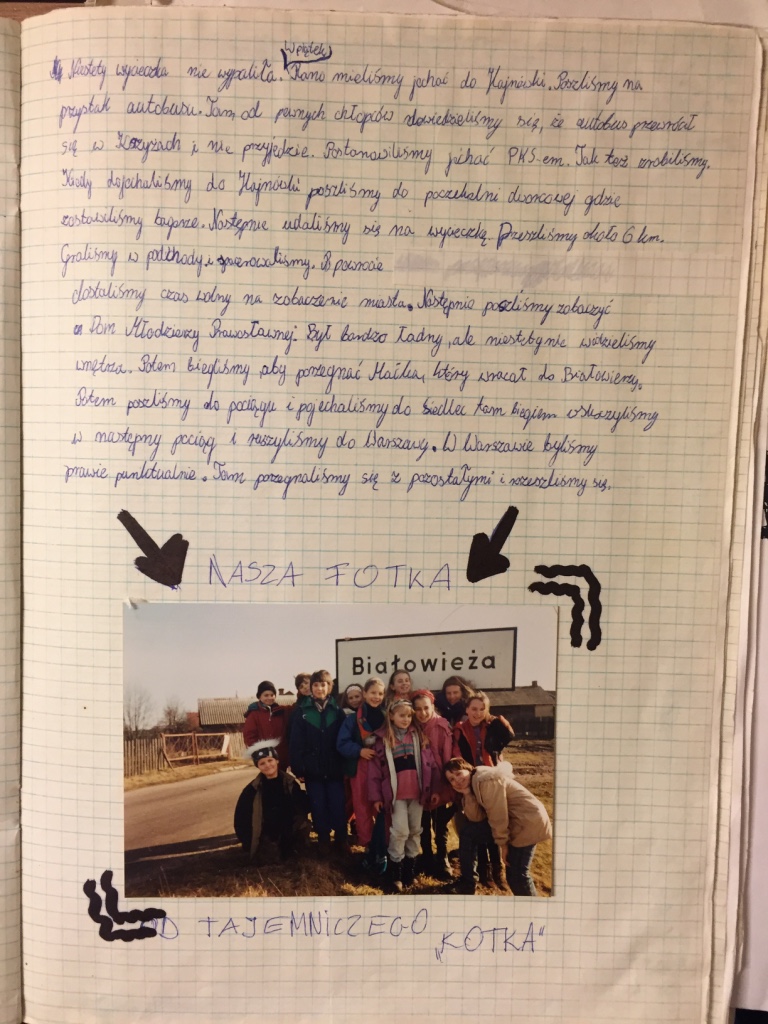 W piątek
Niestety wycieczka nie wypaliła. Rano mieliśmy jechać do Hajnówki. Poszliśmy na
przystak autobusu. Tam od pewnych chłopców dowiedzieliśmy się, że autobus przewrócił
się w Krzyżach i nie przyjedzie. Postanowiliśmy jechać PKS-em. Tak też zrobiliśmy.
Kiedy dojechaliśmy do Hajnówki poszliśmy do poczekalni dworcowej gdzie
zostawiliśmy bagaże. Następnie udaliśmy się na wycieczkę. Przeszliśmy około 6 km.
Graliśmy w podchody i spacerowaliśmy. Po powrocie
dostaliśmy czas wolny na zobaczenie miasta. Następnie poszliśmy zobaczyć
Dom Młodzierzy Prawosławnej. Był bardzo ładny, ale niestety nie widzieliśmy
wnętrza. Potem biegliśmy aby porzegnać Maćka, który wracał do Białowierzy.
Potem poszliśmy do pociągu i pojechaliśmy do Siedlec tam biegiem wskoczyliśmy
w następny pociąg i ruszyliśmy do Warszawy. W Warszawie byliśmy
prawie punktualnie. Tam porzegnaliśmy się z pozostałymi i rozeszliśmy się.
NASZA FOTKA
Białowieża
OD TAJEMNICZEGO „KOTKA"